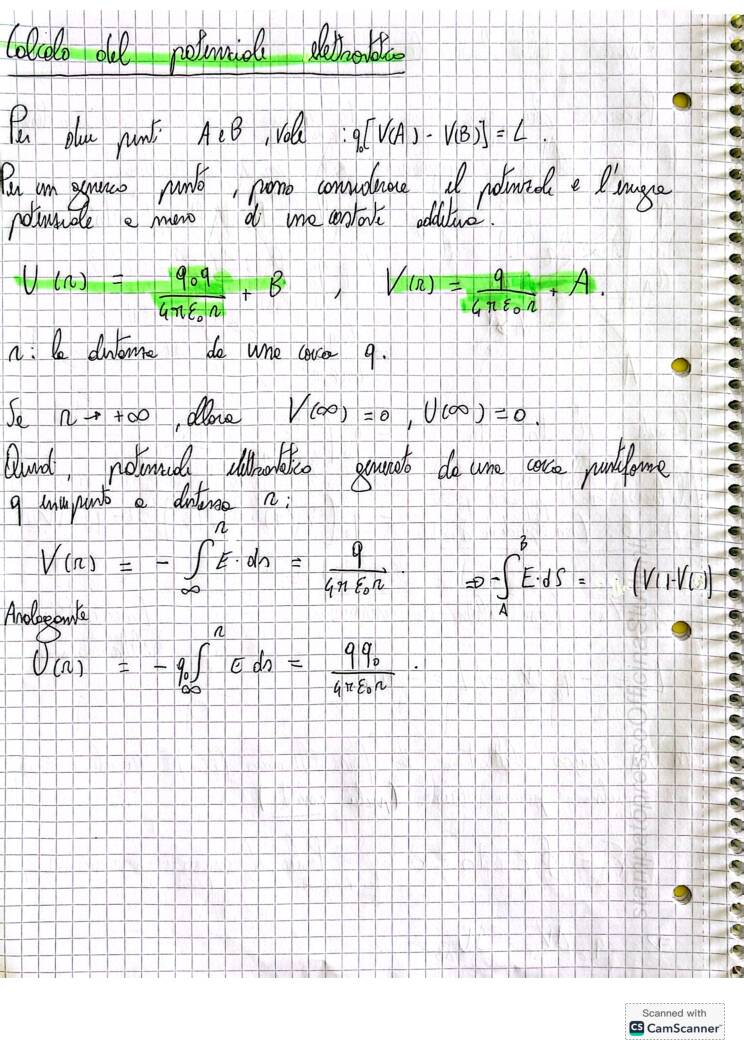 Calcolo del potenziale elettrostatico
Per due punti A e B, vale : q₀[V(A) - V(B)] = L.
Per un generico punto, posso considerare il potenziale e l'energia
potenziale a meno di una costante additiva.
U(r) = q₀q / 4πε₀r + B , V(r) = q / 4πε₀r + A.
r: la distanza da una carica q.
Se r → +∞, allora V(∞) = 0, U(∞) = 0.
Quindi, potenziale elettrostatico generato da una carica puntiforme
q in un punto a distanza r:
V(r) = - ∫_∞^r E · ds = q / 4πε₀r . ⇒ -∫_A^B E·dS = (V( )-V( ))
Analogamente
U(r) = - q₀ ∫_∞^r E ds = qq₀ / 4πε₀r .
stampatopressoOfficinaStudenti
Scanned with
CS CamScanner